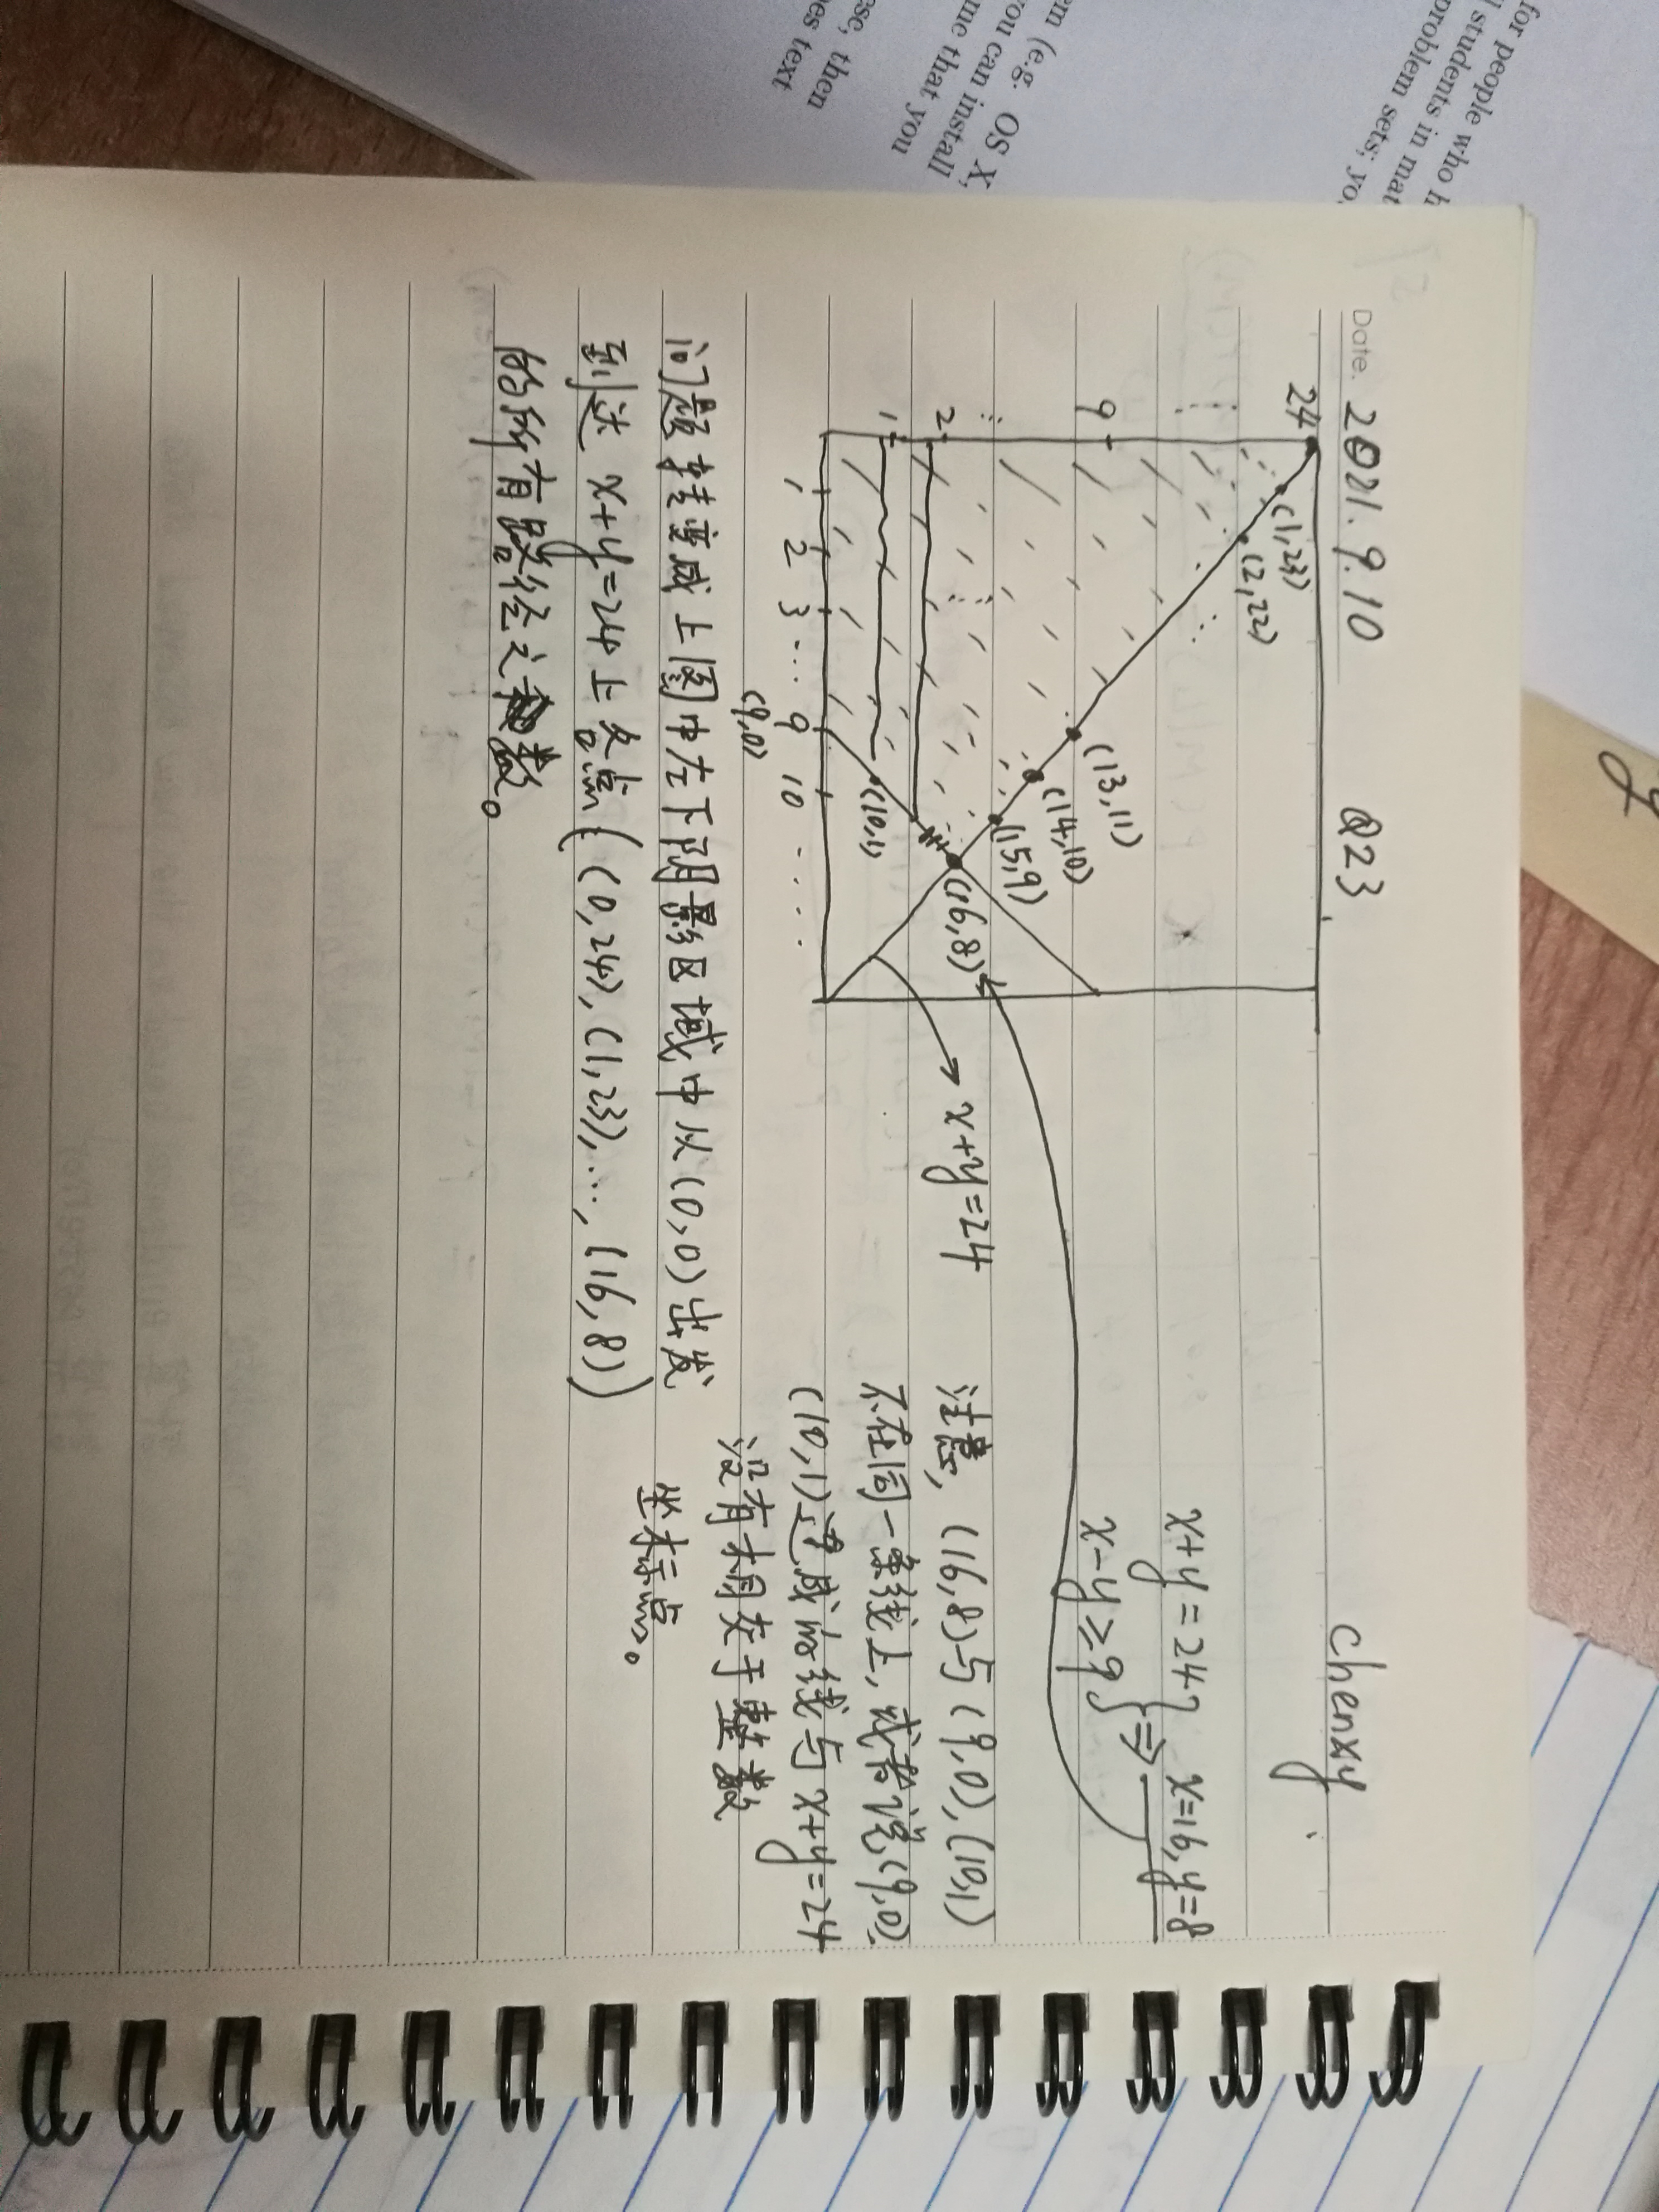 for people who h
students in mat
problem sets; yo
em (e.g. OS X,
you can install
me that you
ese, then
oes text
y
Date. 2021.9.10 Q23 chenxy
24
(1,23)
(2,22)
9
(13,11)
(14,10)
(15,9)
(16,8)
2
1
(10,1)
1 2 3 ... 9 10 .....
(9,0)
x+y=24
x+y=24
x-y≥9
⇒ x=16, y=8
注意, (16,8)与(9,0),(10,1)
不在同一条线上, 或者说(9,0),
(10,1)连成的线与x+y=24
没有相交于整数
坐标点。
问题转变成上图中左下阴影区域中从(0,0)出发
到达 x+y=24上各点((0,24),(1,23),...,(16,8))
的所有路径之数。